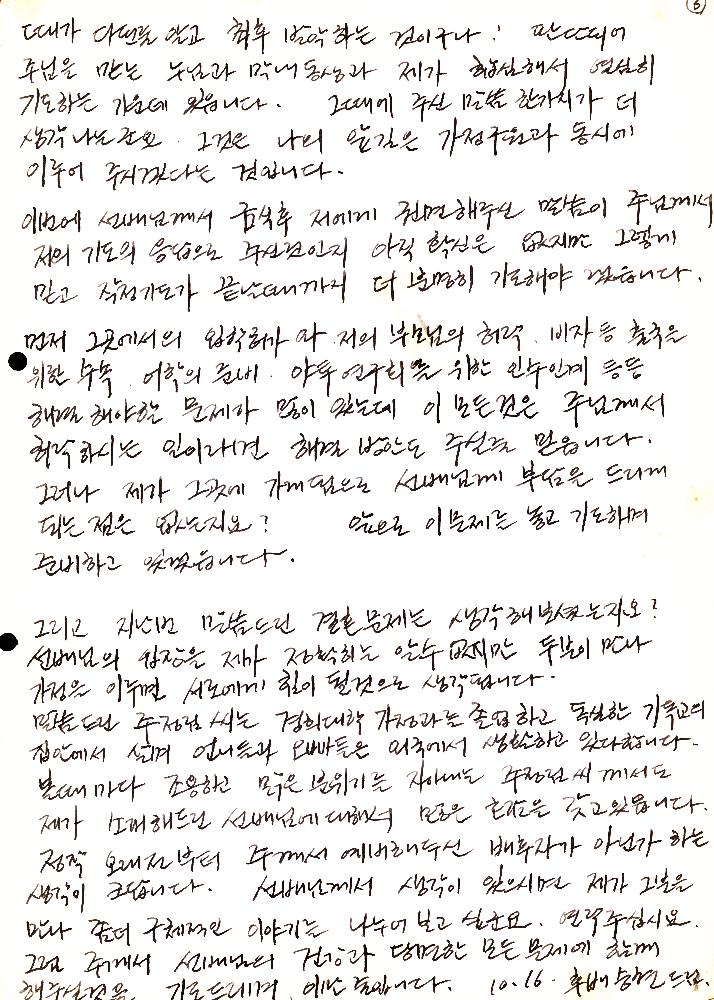 6
때가 다 된줄 알고 최후 발악하는 것이구나! 판단되어
주님을 만난 누님과 막내동생과 제가 합심해서 열심히
기도하는 가운데 있읍니다. 그때에 주신 말씀 한가지가 더
생각나는군요. 그것은 나의 앞길은 가정구원과 동시에
이루어 주시겠다는 것입니다.
이번에 선배님께서 금식후 저에게 권면해주신 말씀이 주님께서
저의 기도의 응답으로 주신것인지 아직 확신은 없지만 그렇게
믿고 작정기도가 끝날때까지 더 분명히 기도해야 겠읍니다.
먼저 그곳에서의 입학허가와 저의 부모님의 허락, 비자등 출국을
위한 수속, 어학의 준비, 연구회를 위한 인수인계 등등
해결해야할 문제가 많이 있는데 이 모든것은 주님께서
허락하시는 일이라면 해결 방안도 주실줄 믿읍니다.
그러나 제가 그곳에 가게됨으로 선배님께 부담을 드리게
되는 점은 없는지요? 앞으로 이 문제를 놓고 기도하며
준비하고 있겠읍니다.
그리고 지난번 말씀드린 결혼문제는 생각해 보셨는지요?
선배님의 입장을 제가 정확히는 알수 없지만 두분이 만나
가정을 이루면 서로에게 힘이 될것으로 생각됩니다.
말씀드린 주정림 씨는 경희대학 가정과를 졸업하고 독실한 기독교의
집안에서 살며 언니들과 오빠들은 외국에서 생활하고 있다합니다.
볼때마다 조용하고 맑은 분위기를 자아내는 주정림씨께서도
제가 소개해드린 선배님에 대해서 많은 관심을 갖고있읍니다.
정작 오래전부터 주께서 예비해두신 배우자가 아닌가 하는
생각이 드답니다. 선배님께서 생각이 있으시면 제가 그분을
만나 좀더 구체적인 이야기를 나누어 보고 싶군요. 연락주십시요.
그럼 주께서 선배님의 건강과 당면한 모든 문제에 함께
해주실것을 기도드리며 이만 줄입니다. 10. 16. 후배 승현 드림.